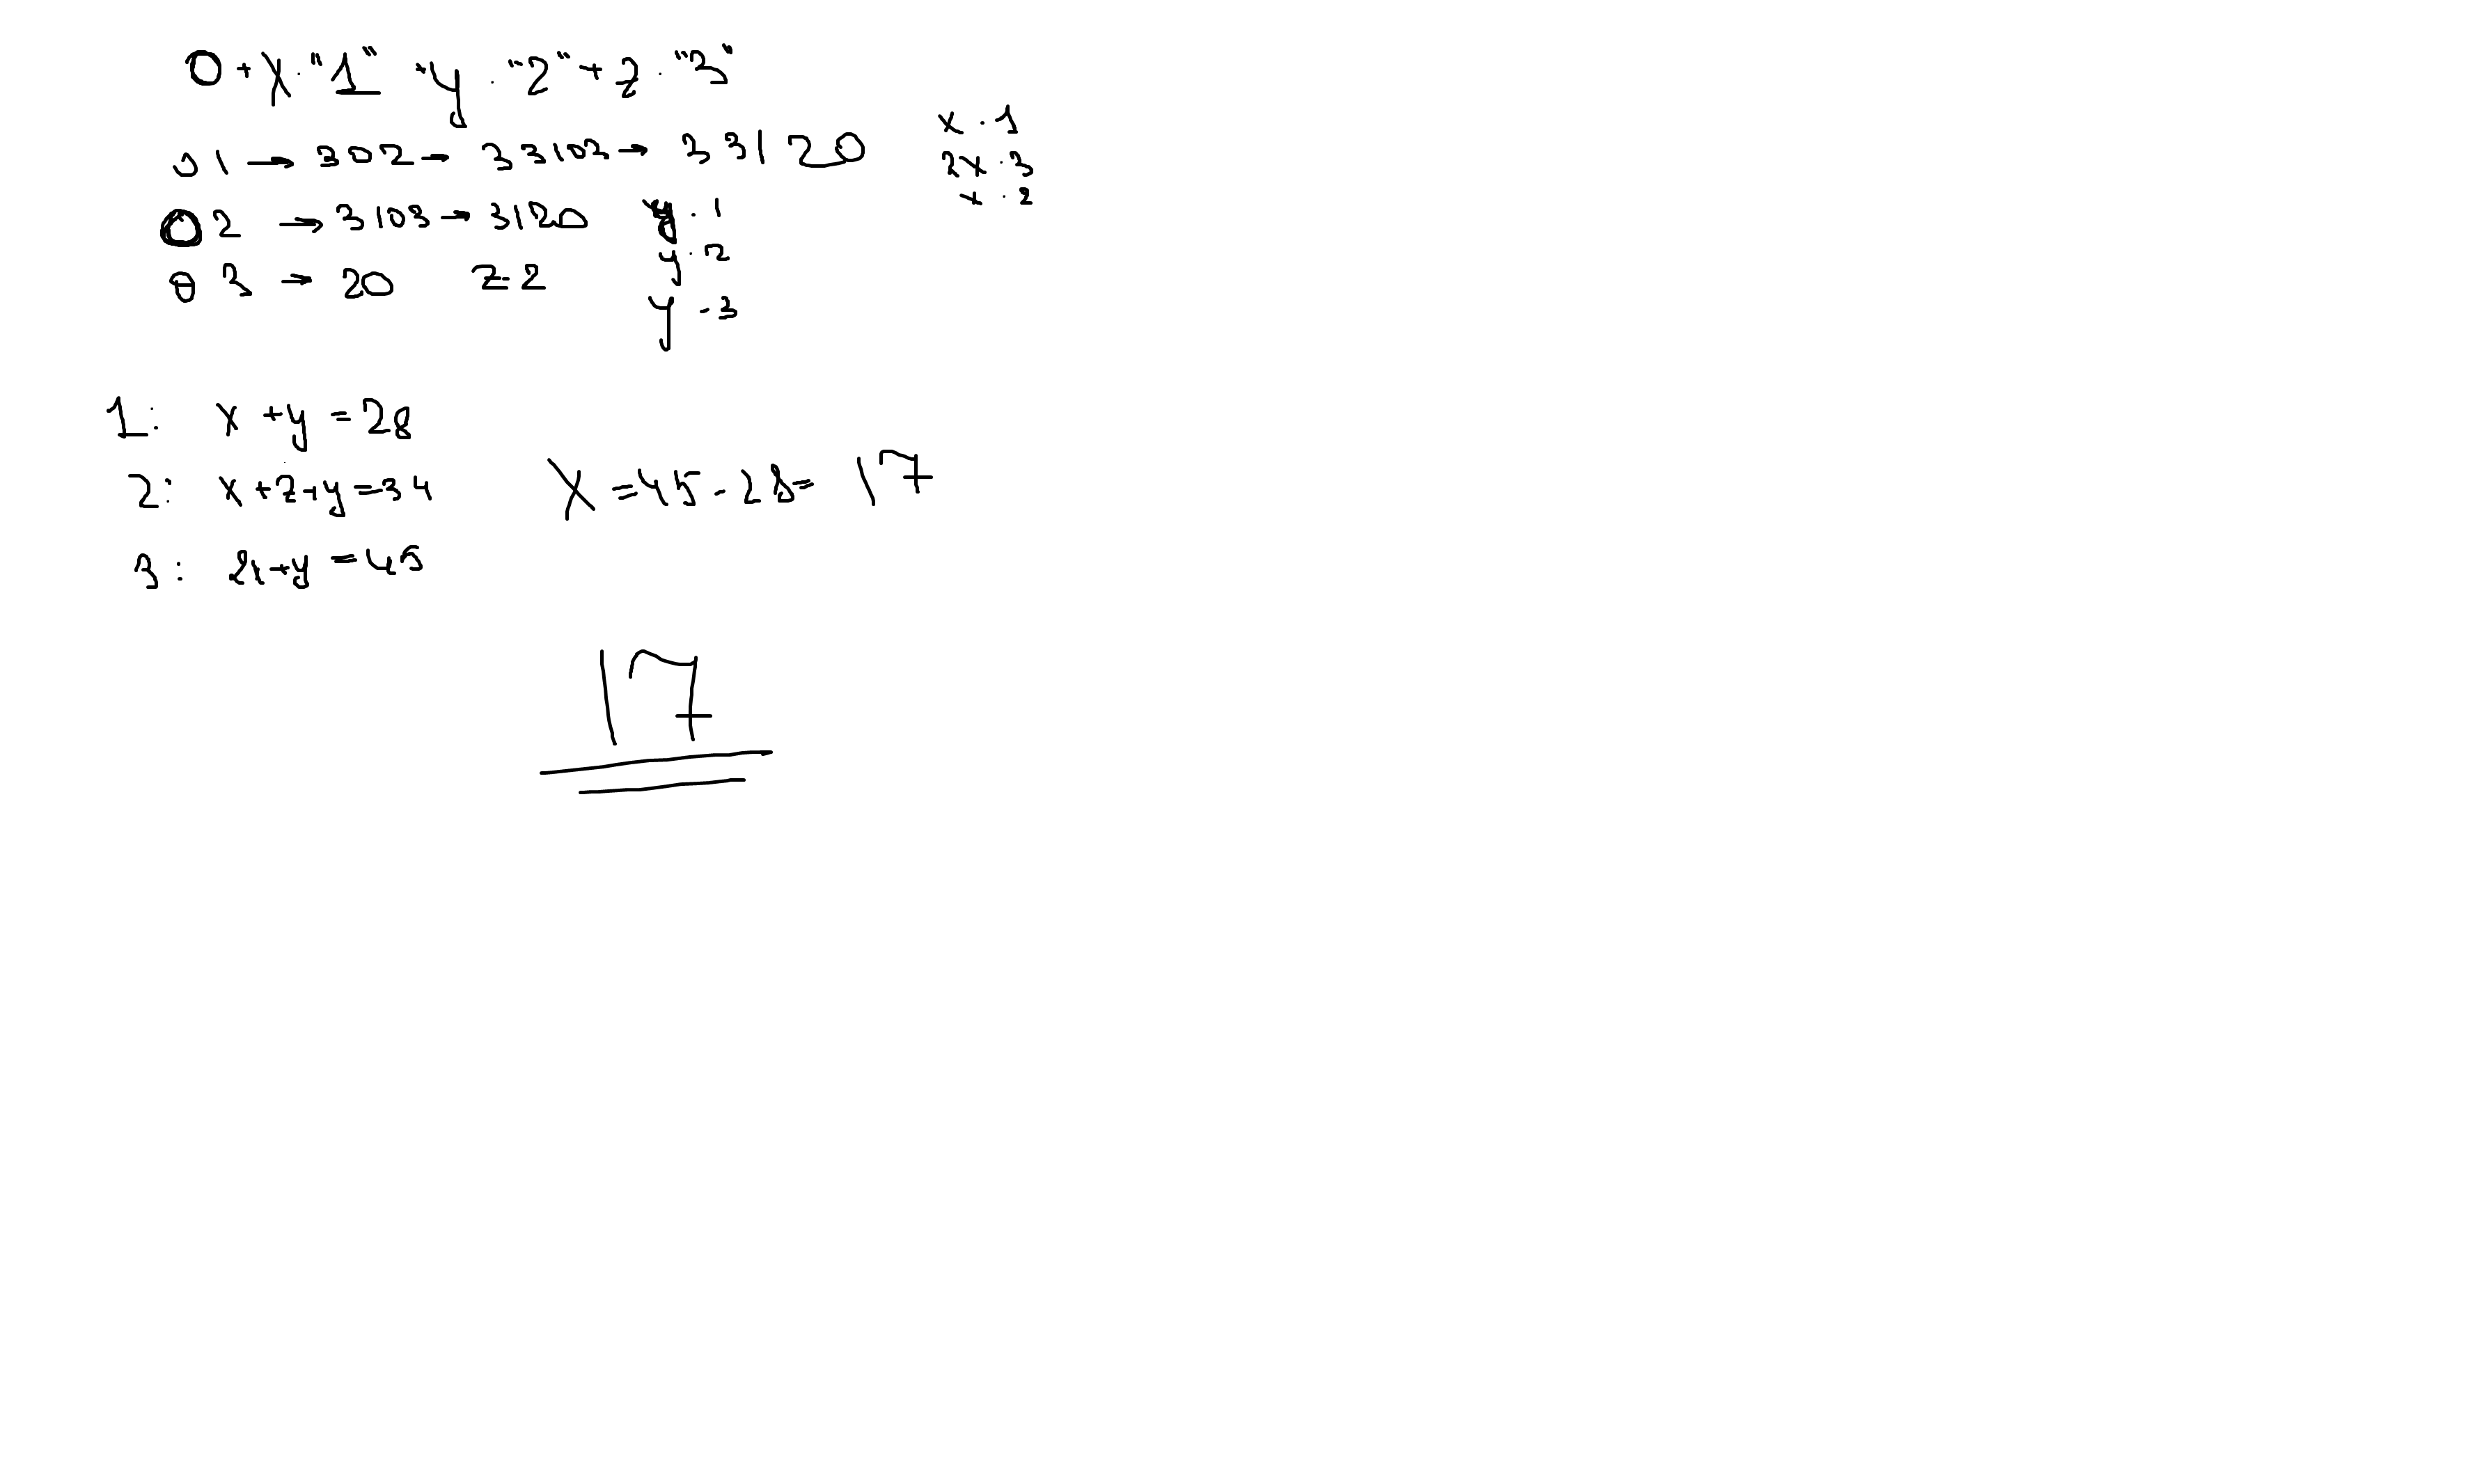 0 + x · "1" + y · "2" + z · "3"
01 → 302 → 33103 → 33120
02 → 3103 → 3120
03 → 20 22
x · 1
2x · 3
x · 2
y · 1
y · 2
y · 3
1: x + y = 28
2: x + 2 + y = 34
3: 2x + y = 45
x = 45 - 28 = 17
17